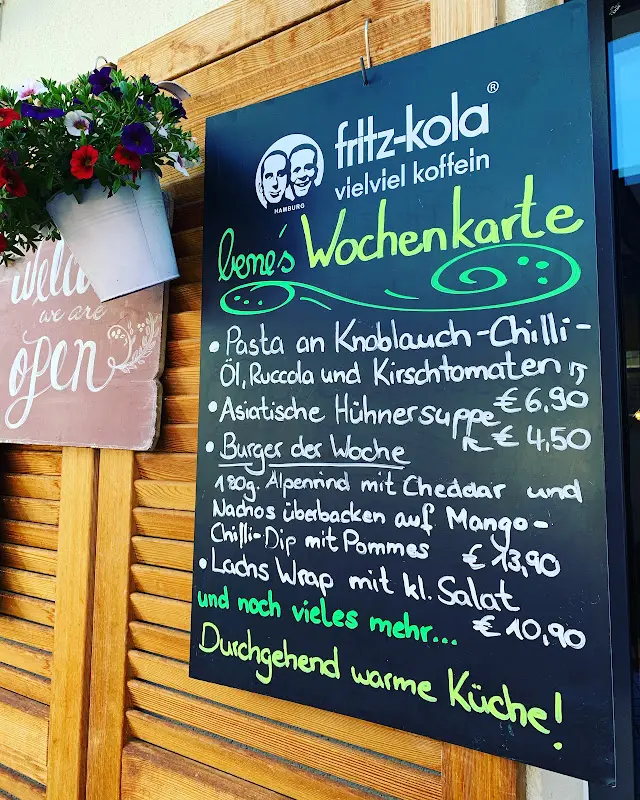 fritz-kola®
vielviel koffein
HAMBURG
bene's Wochenkarte
• Pasta an Knoblauch-Chilli-
Öl, Ruccola und Kirschtomaten
€ 6,90
• Asiatische Hühnersuppe
€ 4,50
• Burger der Woche
180g. Alpenrind mit Cheddar und
Nachos überbacken auf Mango-
Chilli-Dip mit Pommes € 13,90
• Lachs Wrap mit kl. Salat
€ 10,90
und noch vieles mehr...
Durchgehend warme Küche!
we are
open